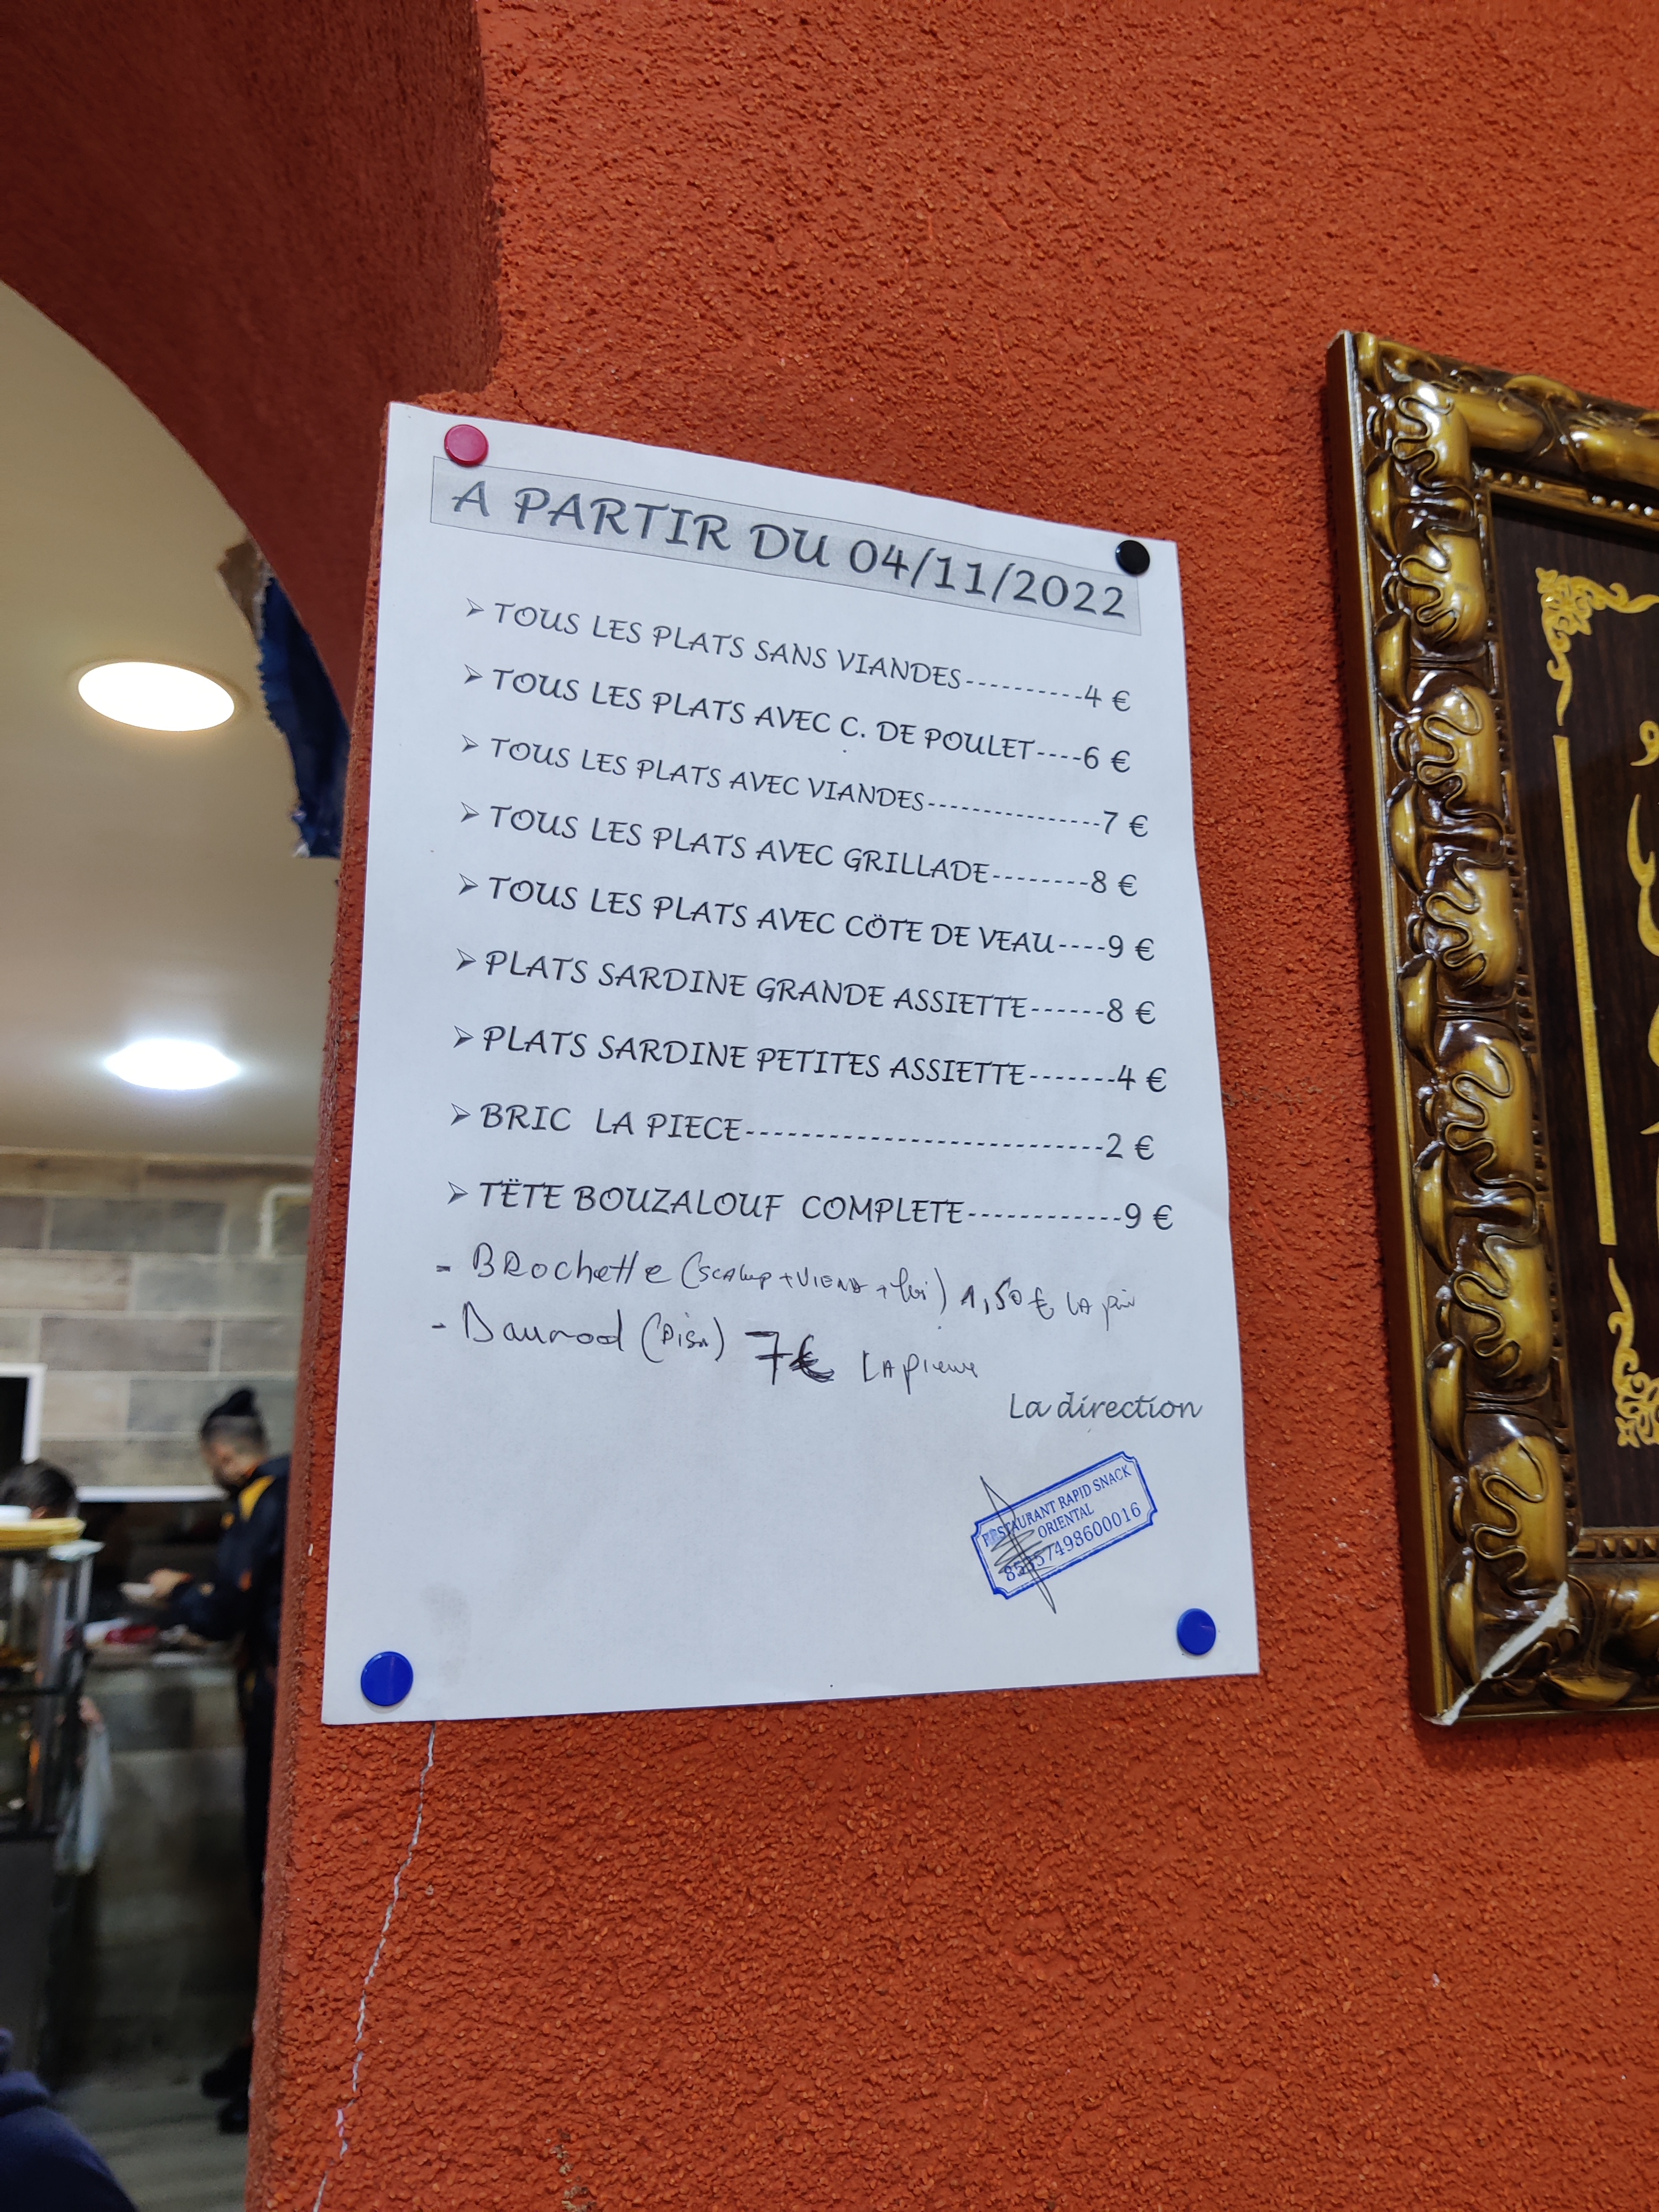 A PARTIR DU 04/11/2022
➢ TOUS LES PLATS SANS VIANDES----------4 €
➢ TOUS LES PLATS AVEC C. DE POULET----6 €
➢ TOUS LES PLATS AVEC VIANDES----------------7 €
➢ TOUS LES PLATS AVEC GRILLADE--------8 €
➢ TOUS LES PLATS AVEC CÖTE DE VEAU----9 €
➢ PLATS SARDINE GRANDE ASSIETTE------8 €
➢ PLATS SARDINE PETITES ASSIETTE-------4 €
➢ BRIC LA PIECE--------------------------2 €
➢ TËTE BOUZALOUF COMPLETE------------9 €
- BRochette ( + + ) 1,50 € LA
- (Pisa) 7€ LA
La direction
RESTAURANT RAPID SNACK
ORIENTAL